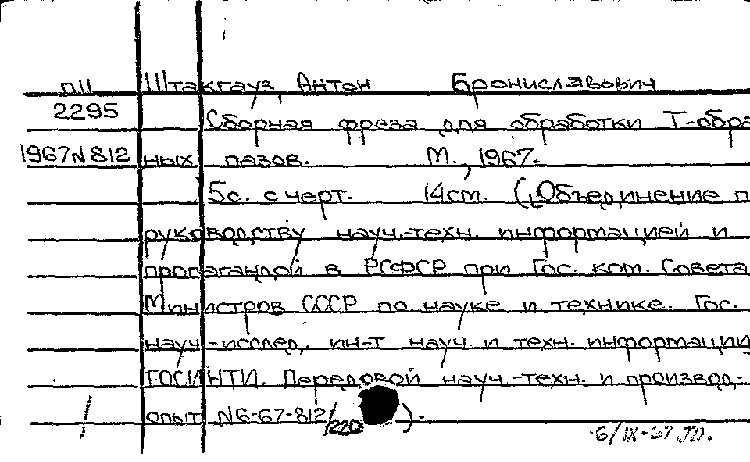 П11 Штакгауз, Антон Брониславович
2295
Сборная фреза для обработки Т-обра
1967 N 812 ных пазов. М., 1967.
5с. с черт. 14см. („Объединение п
руководству науч.-техн. информацией и
пропагандой в РСФСР при Гос. ком. Совета
Министров СССР по науке и технике. Гос.
науч-исслед. ин-т науч. и техн. информации
ГОСИНТИ. Передовой науч.-техн. и производ-
опыт N6-67-812/220 ).
6/IX-67